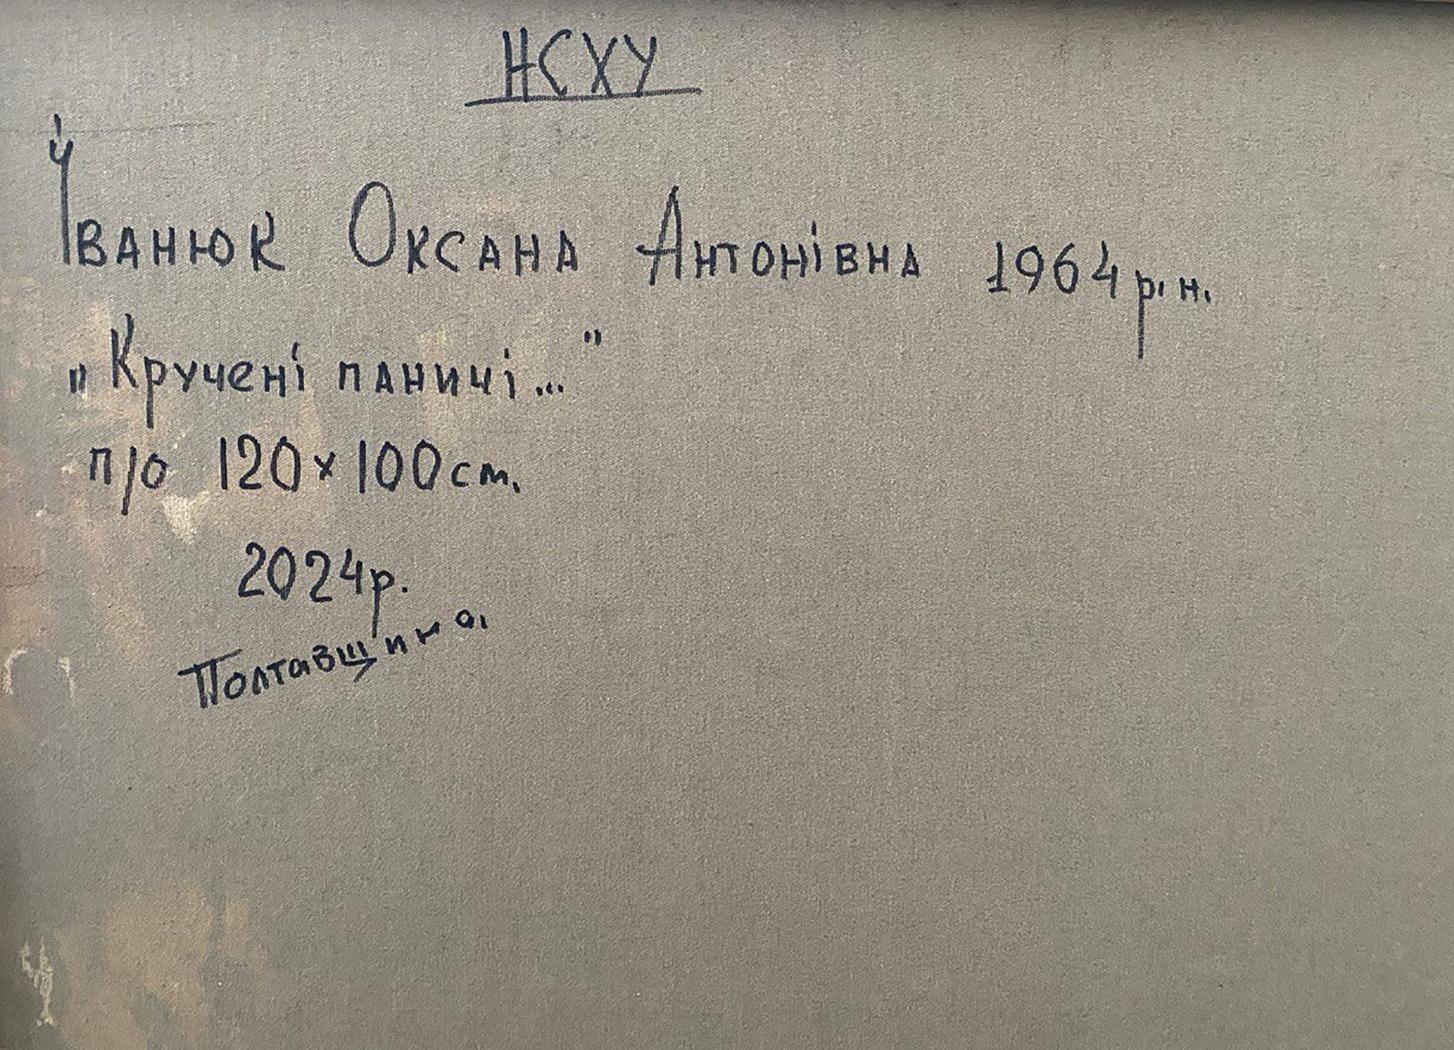 НСХУ
Іванюк Оксана Антонівна 1964 р. н.
„Кручені паничі..."
п/о 120 x 100 см.
2024 р.
Полтавщина.